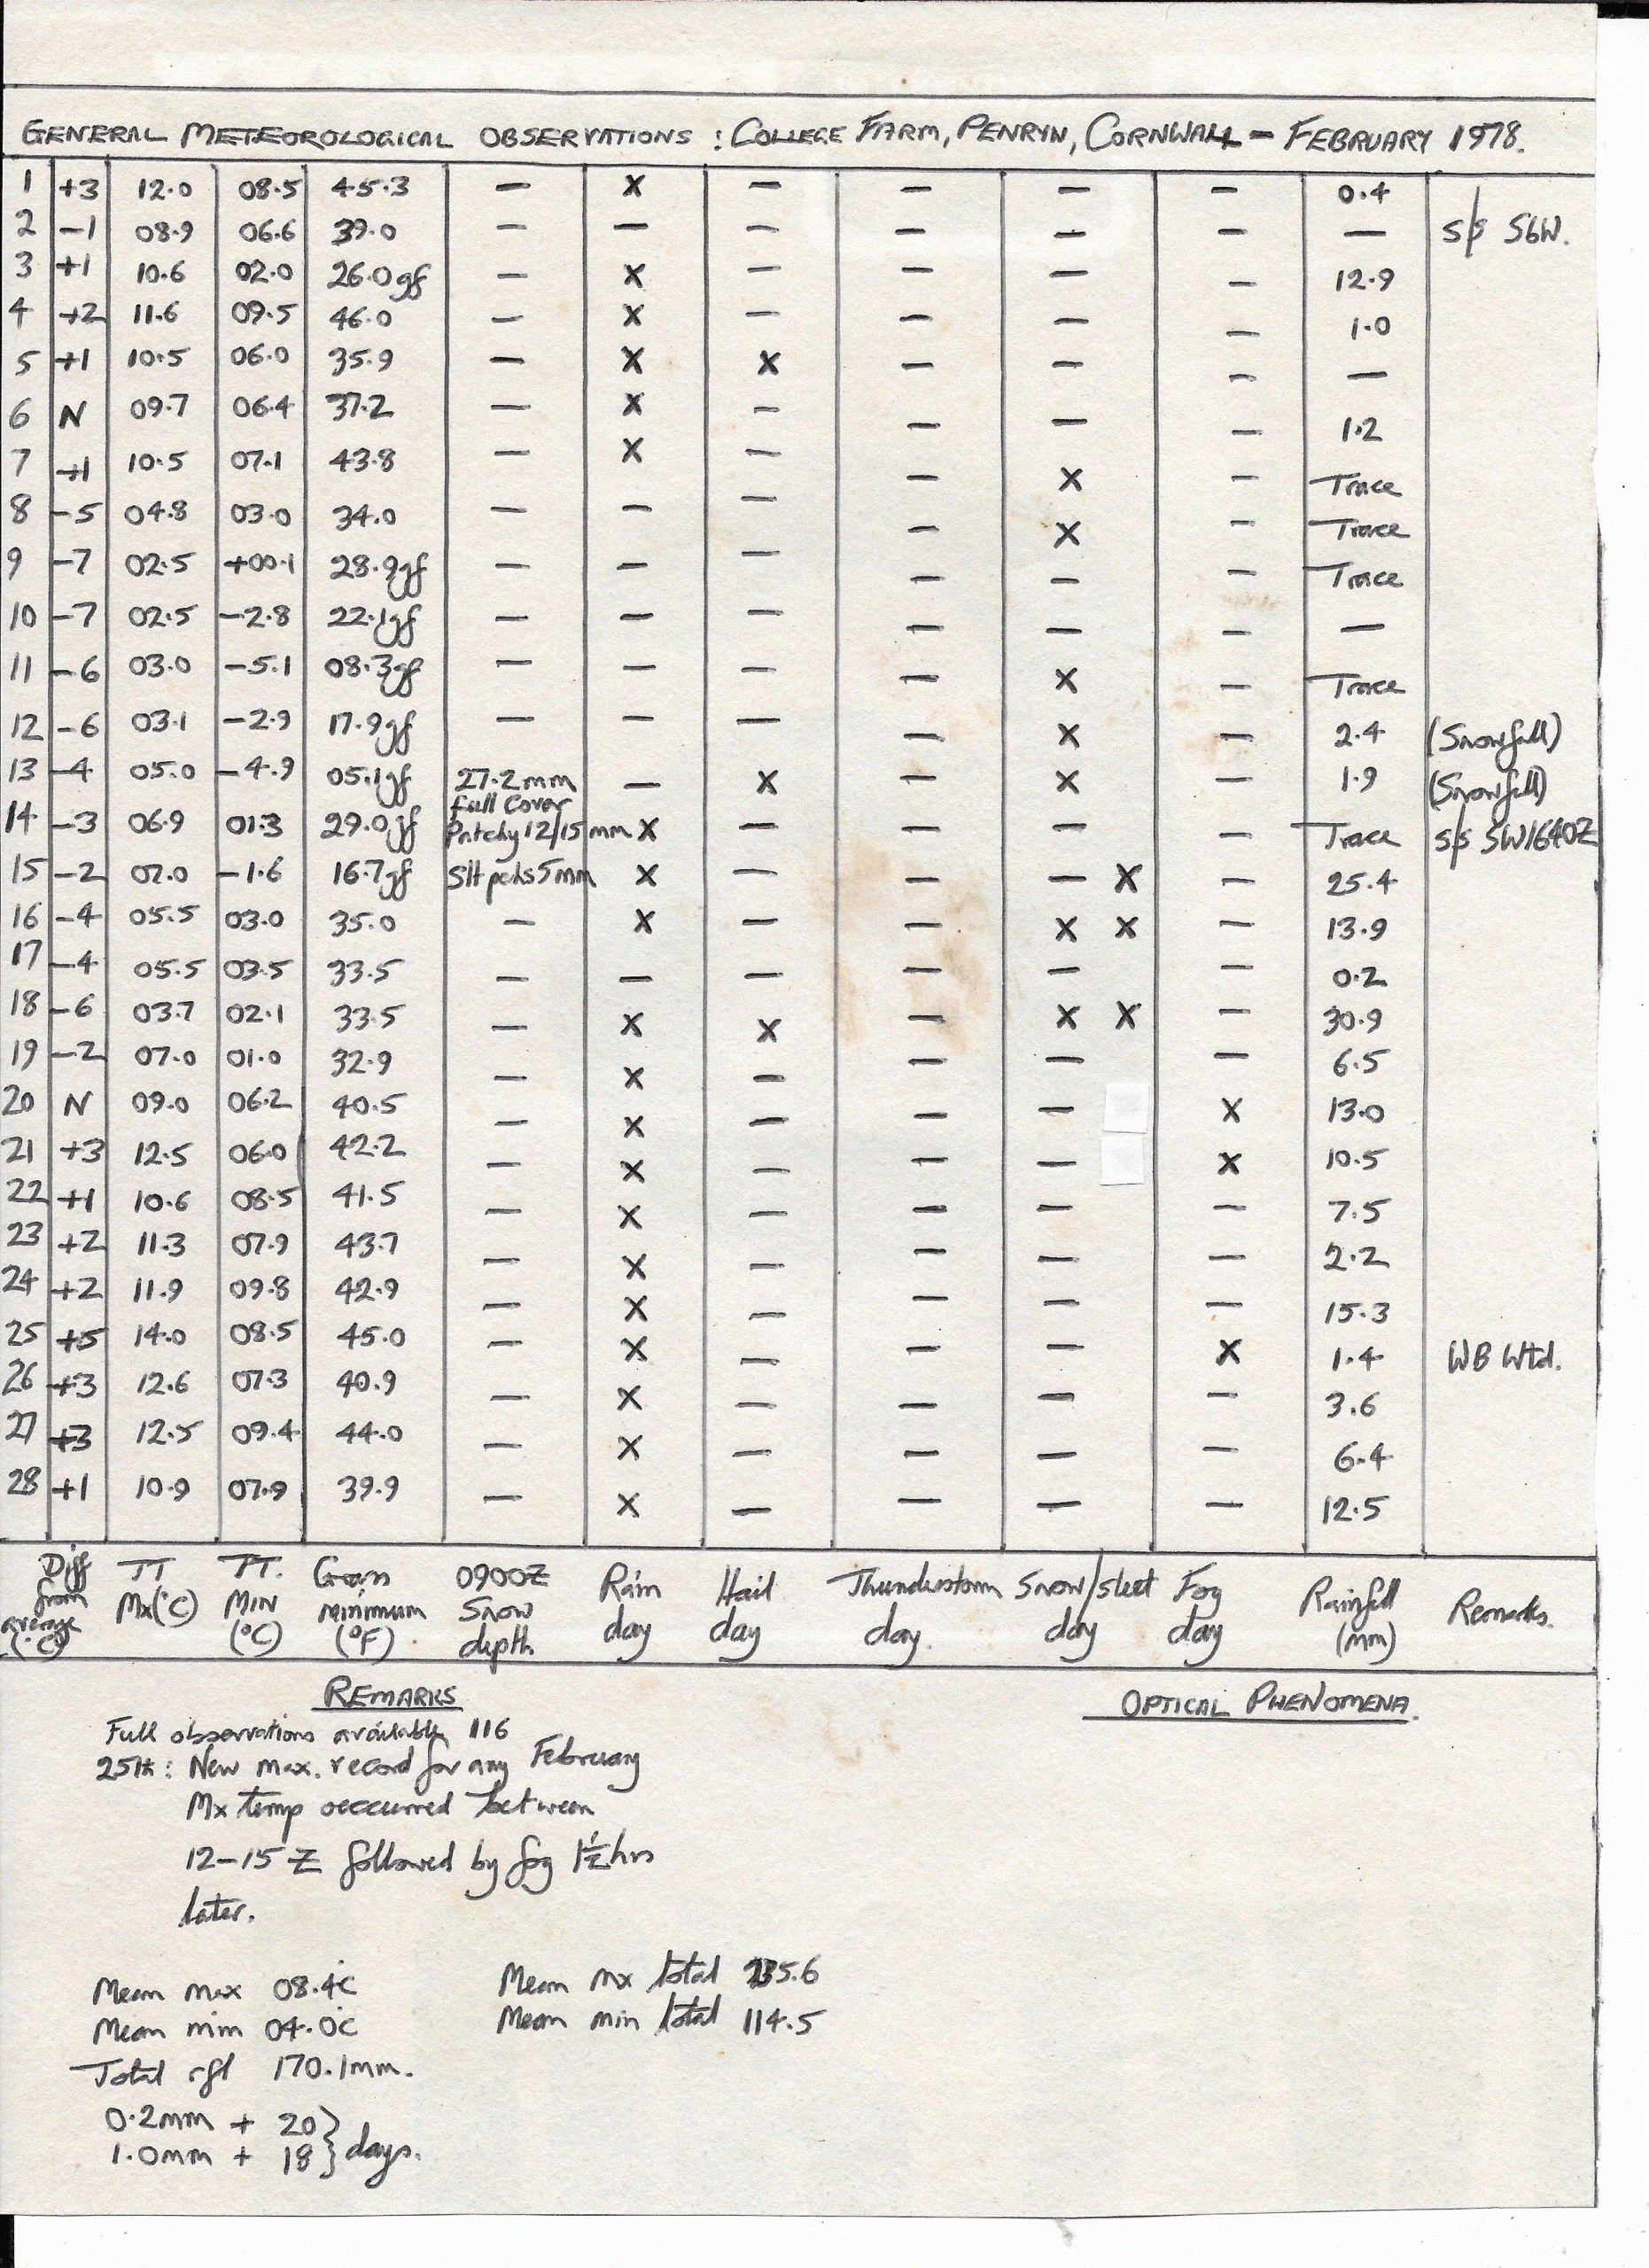 GENERAL METEOROLOGICAL OBSERVATIONS : COLLEGE FARM, PENRYN, CORNWALL – FEBRUARY 1978.
1 +3 12.0 08.5 45.3 — X — — — — 0.4
2 –1 08.9 06.6 39.0 — — — — — — — S/S SbW.
3 +1 10.6 02.0 26.0gf — X — — — — 12.9
4 +2 11.6 09.5 46.0 — X — — — — 1.0
5 +1 10.5 06.0 35.9 — X X — — — —
6 N 09.7 06.4 37.2 — X — — — — 1.2
7 +1 10.5 07.1 43.8 — X — — X — Trace
8 –5 04.8 03.0 34.0 — — — — X — Trace
9 –7 02.5 +00.1 28.9gf — — — — — — Trace
10 –7 02.5 –2.8 22.1gf — — — — — — —
11 –6 03.0 –5.1 08.3gf — — — — X — Trace
12 –6 03.1 –2.9 17.9gf — — — — X — 2.4 (Snowfall)
13 –4 05.0 –4.9 05.1gf 27.2mm — X — X — 1.9 (Snowfall)
full cover
14 –3 06.9 01.3 29.0gf Patchy 12/15mm X — — — — Trace S/S SW1640Z
15 –2 07.0 –1.6 16.7gf Slt pchs 5mm X — — — X — 25.4
16 –4 05.5 03.0 35.0 — X — — X X — 13.9
17 –4 05.5 03.5 33.5 — — — — — — 0.2
18 –6 03.7 02.1 33.5 — X X — X X — 30.9
19 –2 07.0 01.0 32.9 — X — — — — 6.5
20 N 09.0 06.2 40.5 — X — — — X 13.0
21 +3 12.5 06.0 42.2 — X — — — X 10.5
22 +1 10.6 08.5 41.5 — X — — — — 7.5
23 +2 11.3 07.9 43.7 — X — — — — 2.2
24 +2 11.9 09.8 42.9 — X — — — — 15.3
25 +5 14.0 08.5 45.0 — X — — — X 1.4 WB Wtd.
26 +3 12.6 07.3 40.9 — X — — — — 3.6
27 +3 12.5 09.4 44.0 — X — — — — 6.4
28 +1 10.9 07.9 39.9 — X — — — — 12.5
Diff from average (°C)
TT Mx(°C)
TT. MIN (°C)
Grass minimum (°F)
0900Z Snow depth
Rain day
Hail day
Thunderstorm day.
Snow/sleet day
Fog day
Rainfall (mm)
Remarks.
REMARKS
Full observations available 116
25th: New max. record for any February
Mx temp occurred between
12–15 Z followed by fog 1½hrs
later.
Mean max 08.4°C
Mean min 04.0°C
Total rfl 170.1mm.
0.2mm + 20
1.0mm + 18 } days.
Mean mx total 235.6
Mean min total 114.5
OPTICAL PHENOMENA.